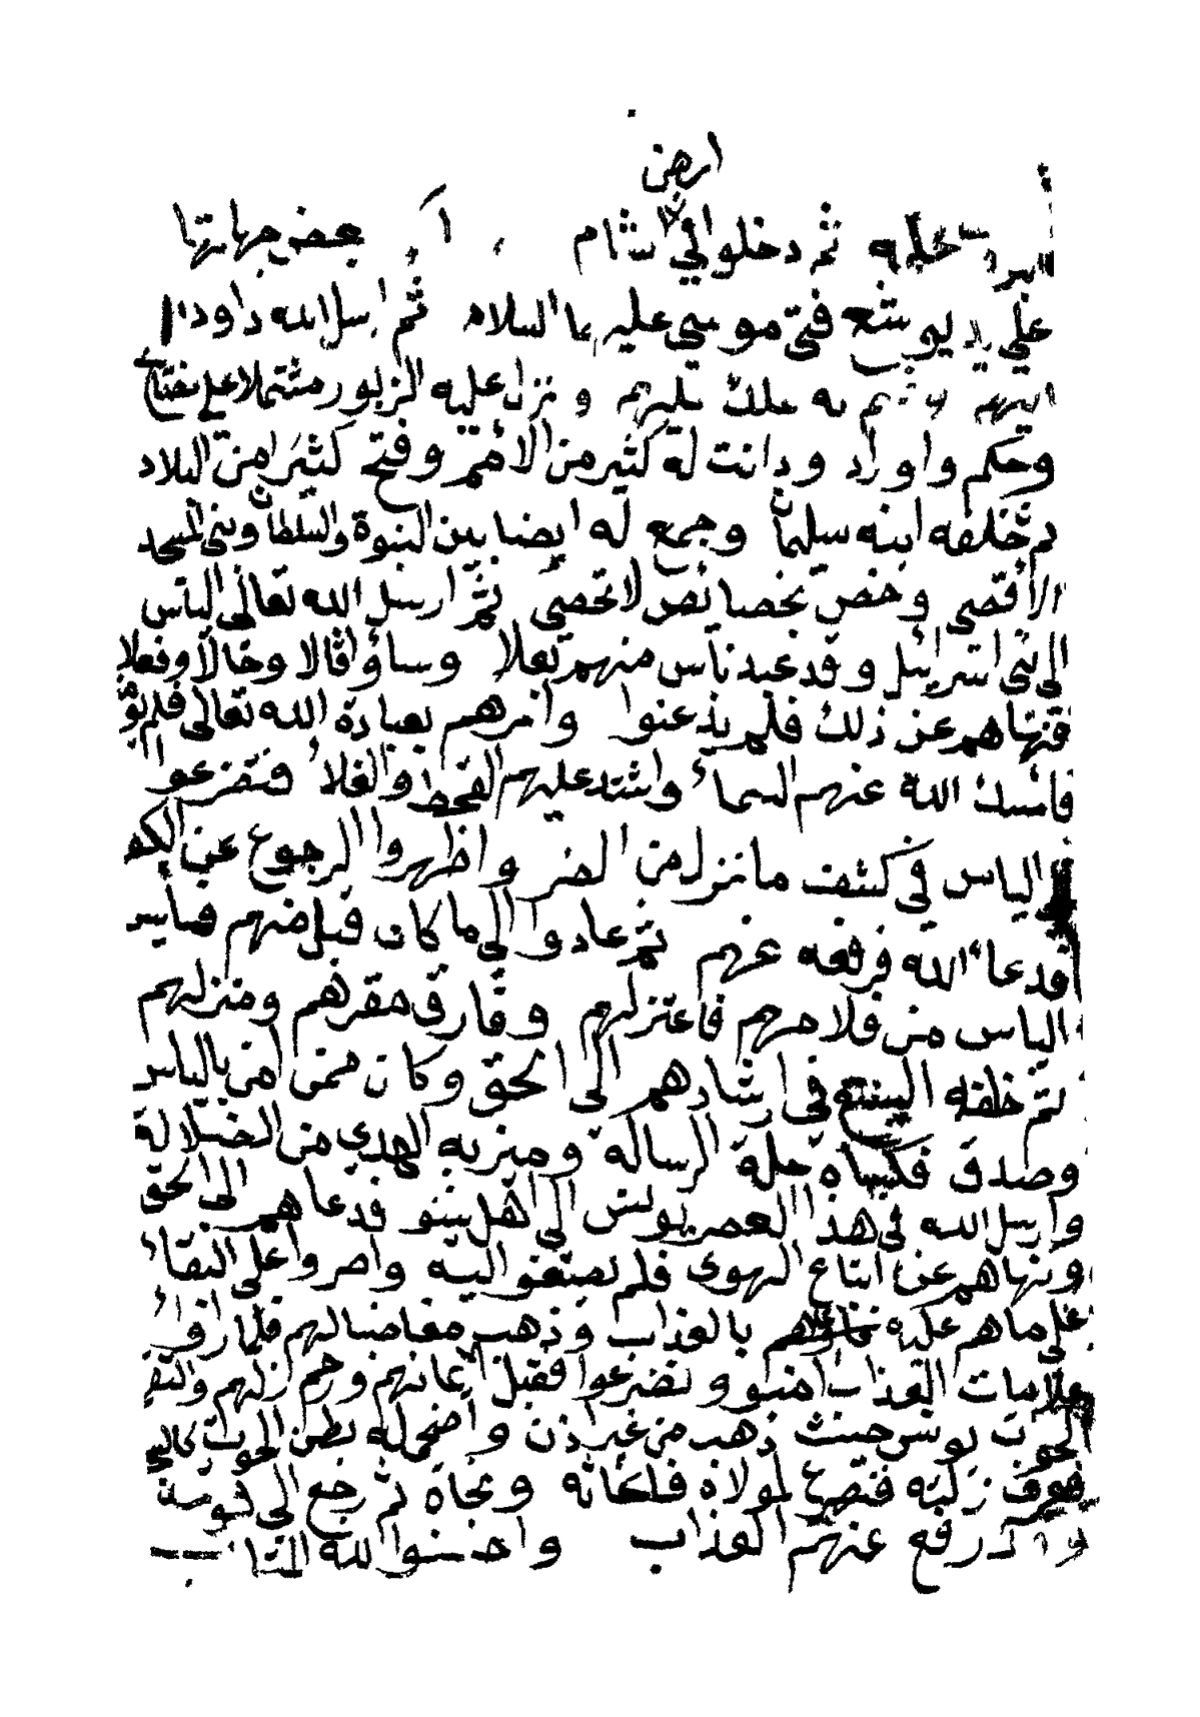 ارض
ثم دخلوا في الشام بعض جهاتها
على يد يوشع فتى موسى عليهما السلام ثم ارسل الله داود
اليهم وملك عليهم ونزل عليه الزبور مشتملا على
وحكم واوراد ودانت له كثير من الأمم وفتح كثيرا من البلاد
ثم خلفه ابنه سليمان وجمع له ايضا بين النبوة والسلطان وبنى المسجد
الاقصى وخص بخصائص لا تحصى ثم ارسل الله تعالى الياس
الى بني اسرائيل وقد عبد ناس منهم بعلا وساؤا قالا وحالا وفعلا
فنهاهم عن ذلك فلم يذعنوا وامرهم بعبادة الله تعالى فلم
فامسك الله عنهم السماء واشتد عليهم القحط والغلا فتضرعوا
الياس في كشف ما نزل من الضر واظهروا الرجوع عن الكفر
فدعا الله فرفعه عنهم ثم عادوا الى ما كان قبل منهم فايس
الياس من فلاحهم فاعتزلهم وفارق مقرهم ومنزلهم
ثم خلفه اليسع في ارشادهم الى الحق وكان ممن امن بالياس
وصدق فكساه حلة الرسالة وميز به الهدى من الضلالة
وارسل الله في هذا العصر يونس الى اهل نينو فدعاهم الى الحق
ونهاهم عن اتباع الهوى فلم يصغوا اليه واصروا على البقاء
على ماهم عليه بالعذاب وذهب مغاضبا لهم فلما راوا
علامات العذاب امنوا وتضرعوا فقبل ايمانهم ورحم زلهم والتقم
الحوت يونس حيث ذهب من غير اذن واضحى له بطن الحوت كالسجن
فتضرع لمولاه ونجاه ثم رجع الى قومه
رفع عنهم العذاب واحسنوا لله المتاب